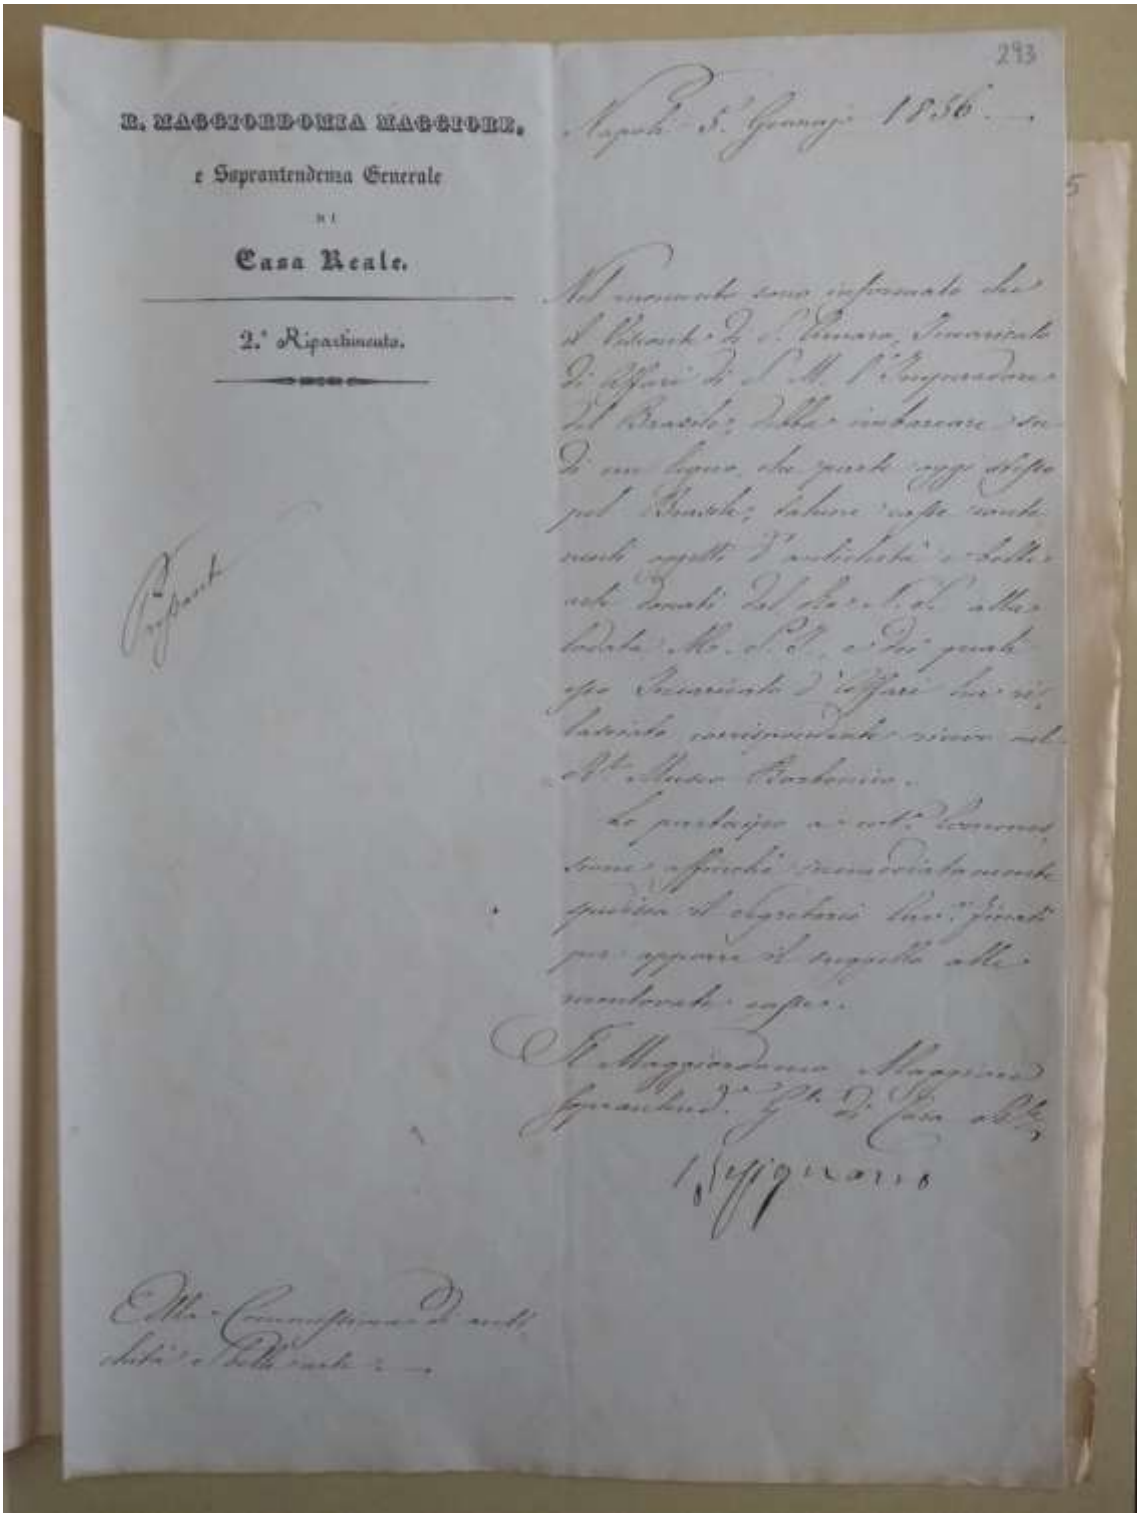 293
R. MAGGIORDOMIA MAGGIORE,
e Soprantendenza Generale
DI
Casa Reale.
2.° Ripartimento.
Napoli 5. Gennajo 1856.
Pressante
Nel momento sono informato che
il Visconte di S. Amaro, Incaricato
di Affari di S. M. l'Imperadore
del Brasile, debba imbarcare su
di un legno, che parte oggi stesso
pel Brasile, talune casse conte
nenti oggetti d'antichità e belle
arti donati dal Re N. S. alla
lodata M. S. I., e dei quali
esso Incaricato d'Affari ha ri,
lasciato corrispondente ricevo nel
R.le Museo Borbonico.
Lo partecipo a cot.a Commes,
sione affinchè immediatamente
spedisca il Segretario Cav.r Finati
per apporre il suggello alle
mentovate casse.
Il Maggiordomo Maggiore
Soprantend.e G.le di Casa R.le
Bisignano
Alla Commessione di anti,
chità e belle arti
5